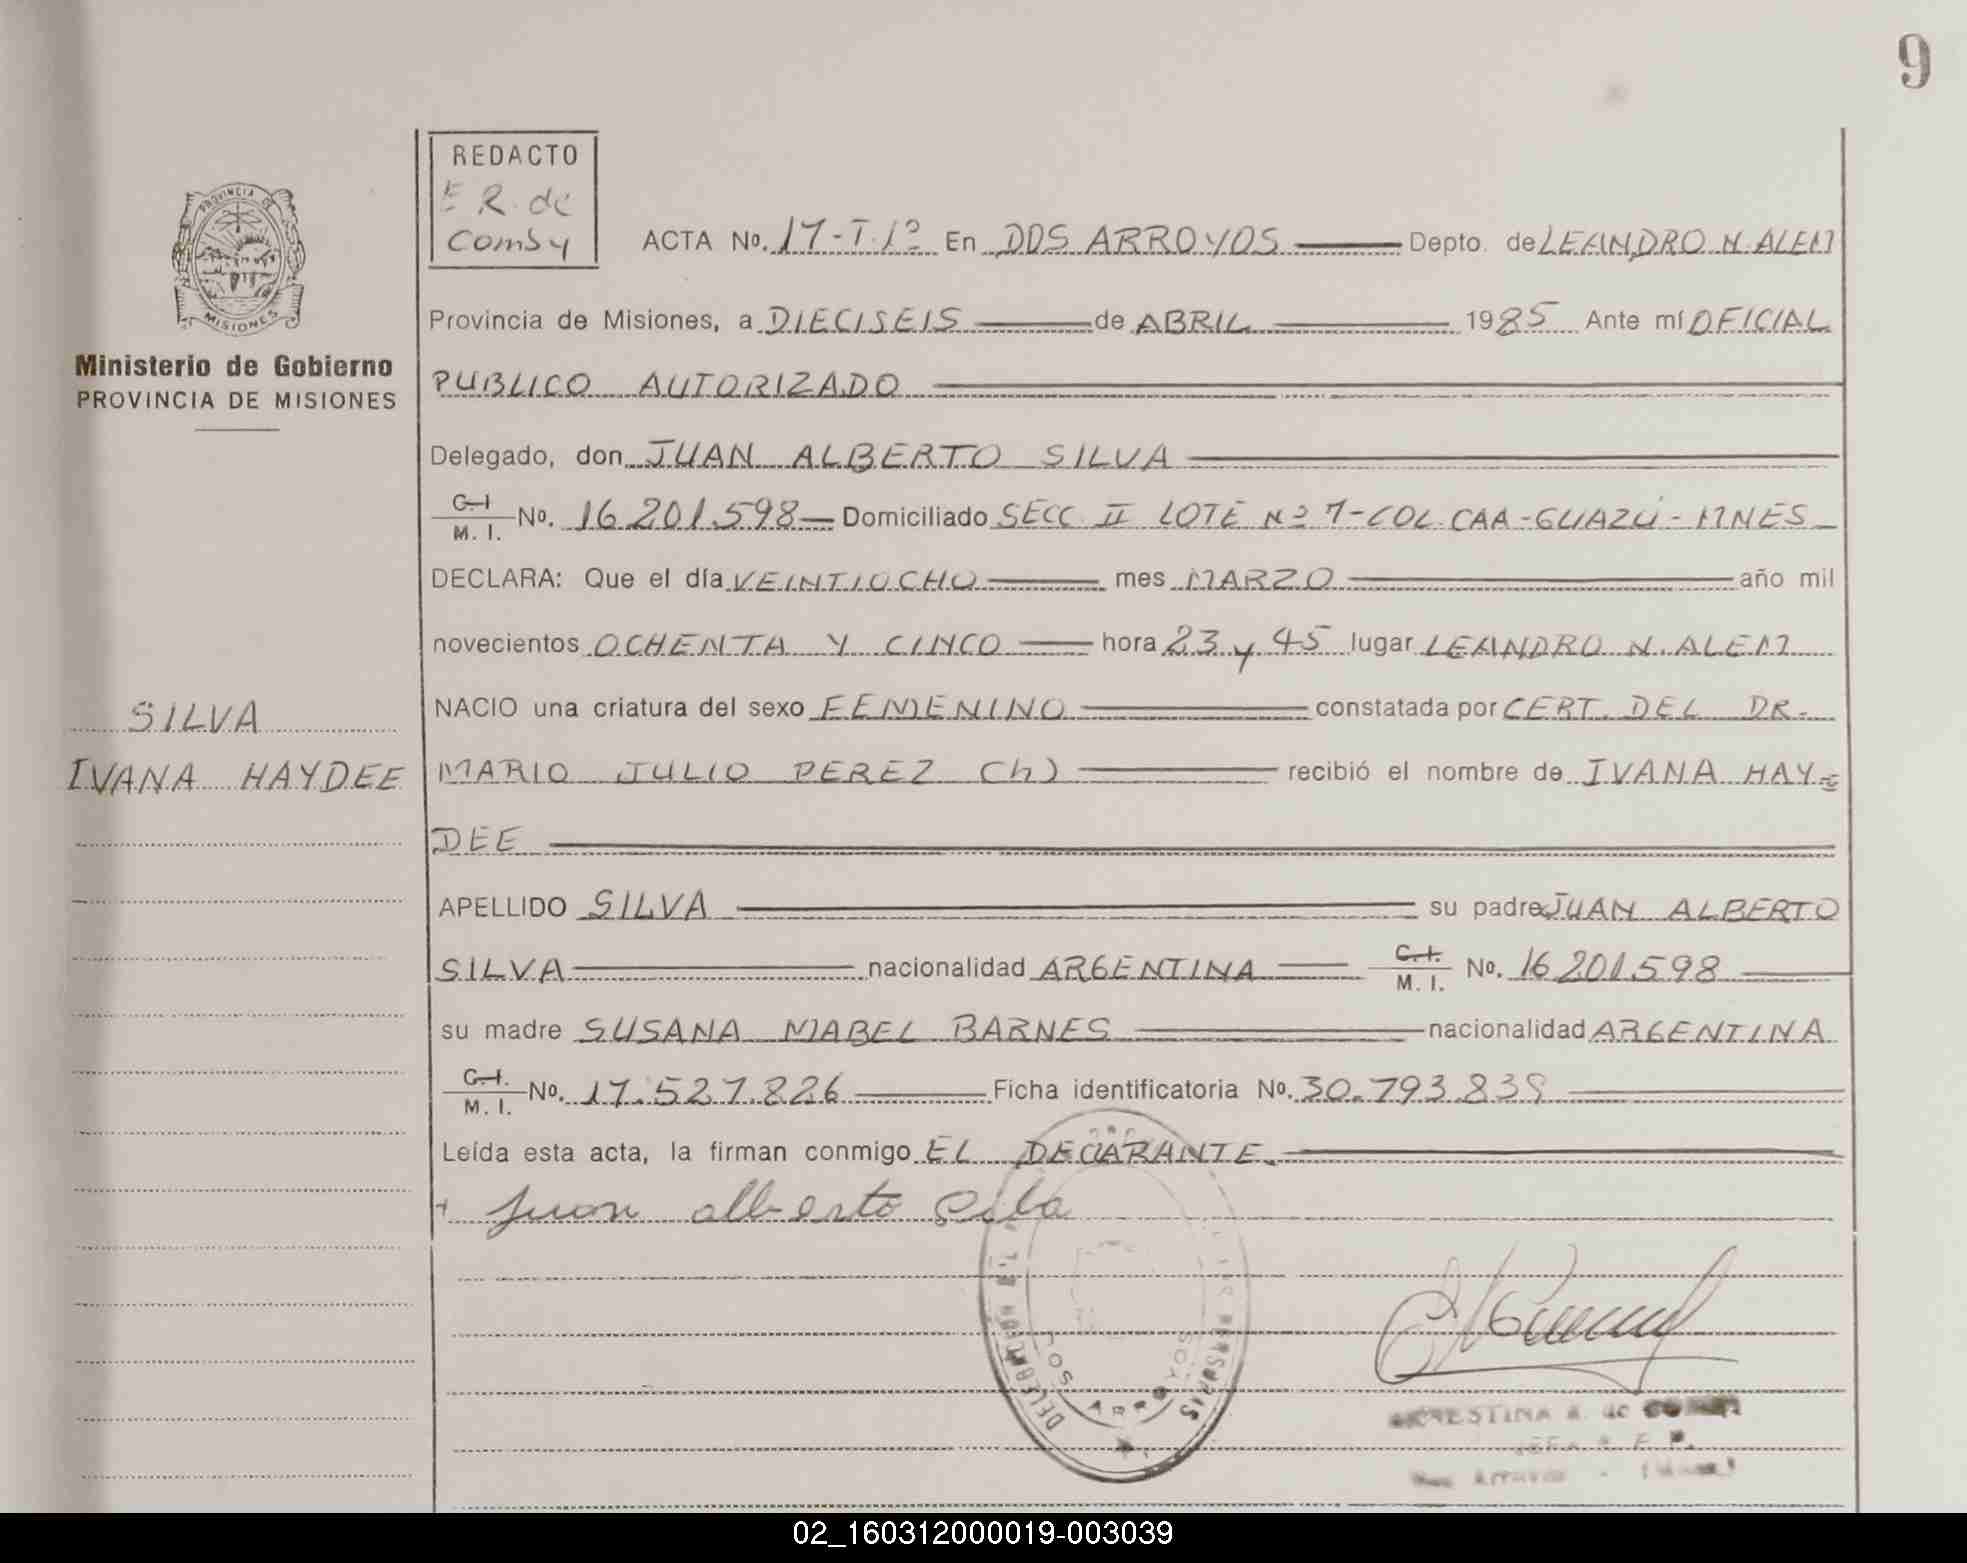 9
REDACTO
E R. de
Comsy
PROVINCIA DE
MISIONES
Ministerio de Gobierno
PROVINCIA DE MISIONES
ACTA No. 17-T.1º En DOS ARROYOS Depto. de LEANDRO N. ALEM
Provincia de Misiones, a DIECISEIS de ABRIL 1985 Ante mí OFICIAL
PUBLICO AUTORIZADO
Delegado, don JUAN ALBERTO SILVA
C.I
M. I. No. 16 201.598 Domiciliado SECC. II LOTE Nº 7-COL CAA-GUAZÚ-MNES
DECLARA: Que el día VEINTIOCHO mes MARZO año mil
novecientos OCHENTA Y CINCO hora 23 y 45 lugar LEANDRO N. ALEM
NACIO una criatura del sexo FEMENINO constatada por CERT. DEL DR.
SILVA
IVANA HAYDEE
MARIO JULIO PEREZ (h) recibió el nombre de IVANA HAY=
DEE
APELLIDO SILVA su padre JUAN ALBERTO
SILVA nacionalidad ARGENTINA C.I. M. I. No. 16 201.598
su madre SUSANA MABEL BARNES nacionalidad ARGENTINA
C.I.
M. I. No. 17.527.826 Ficha identificatoria No. 30.793.839
Leída esta acta, la firman conmigo EL DECARANTE.
Juan alberto Silva
DOS ARROYOS
02_160312000019-003039